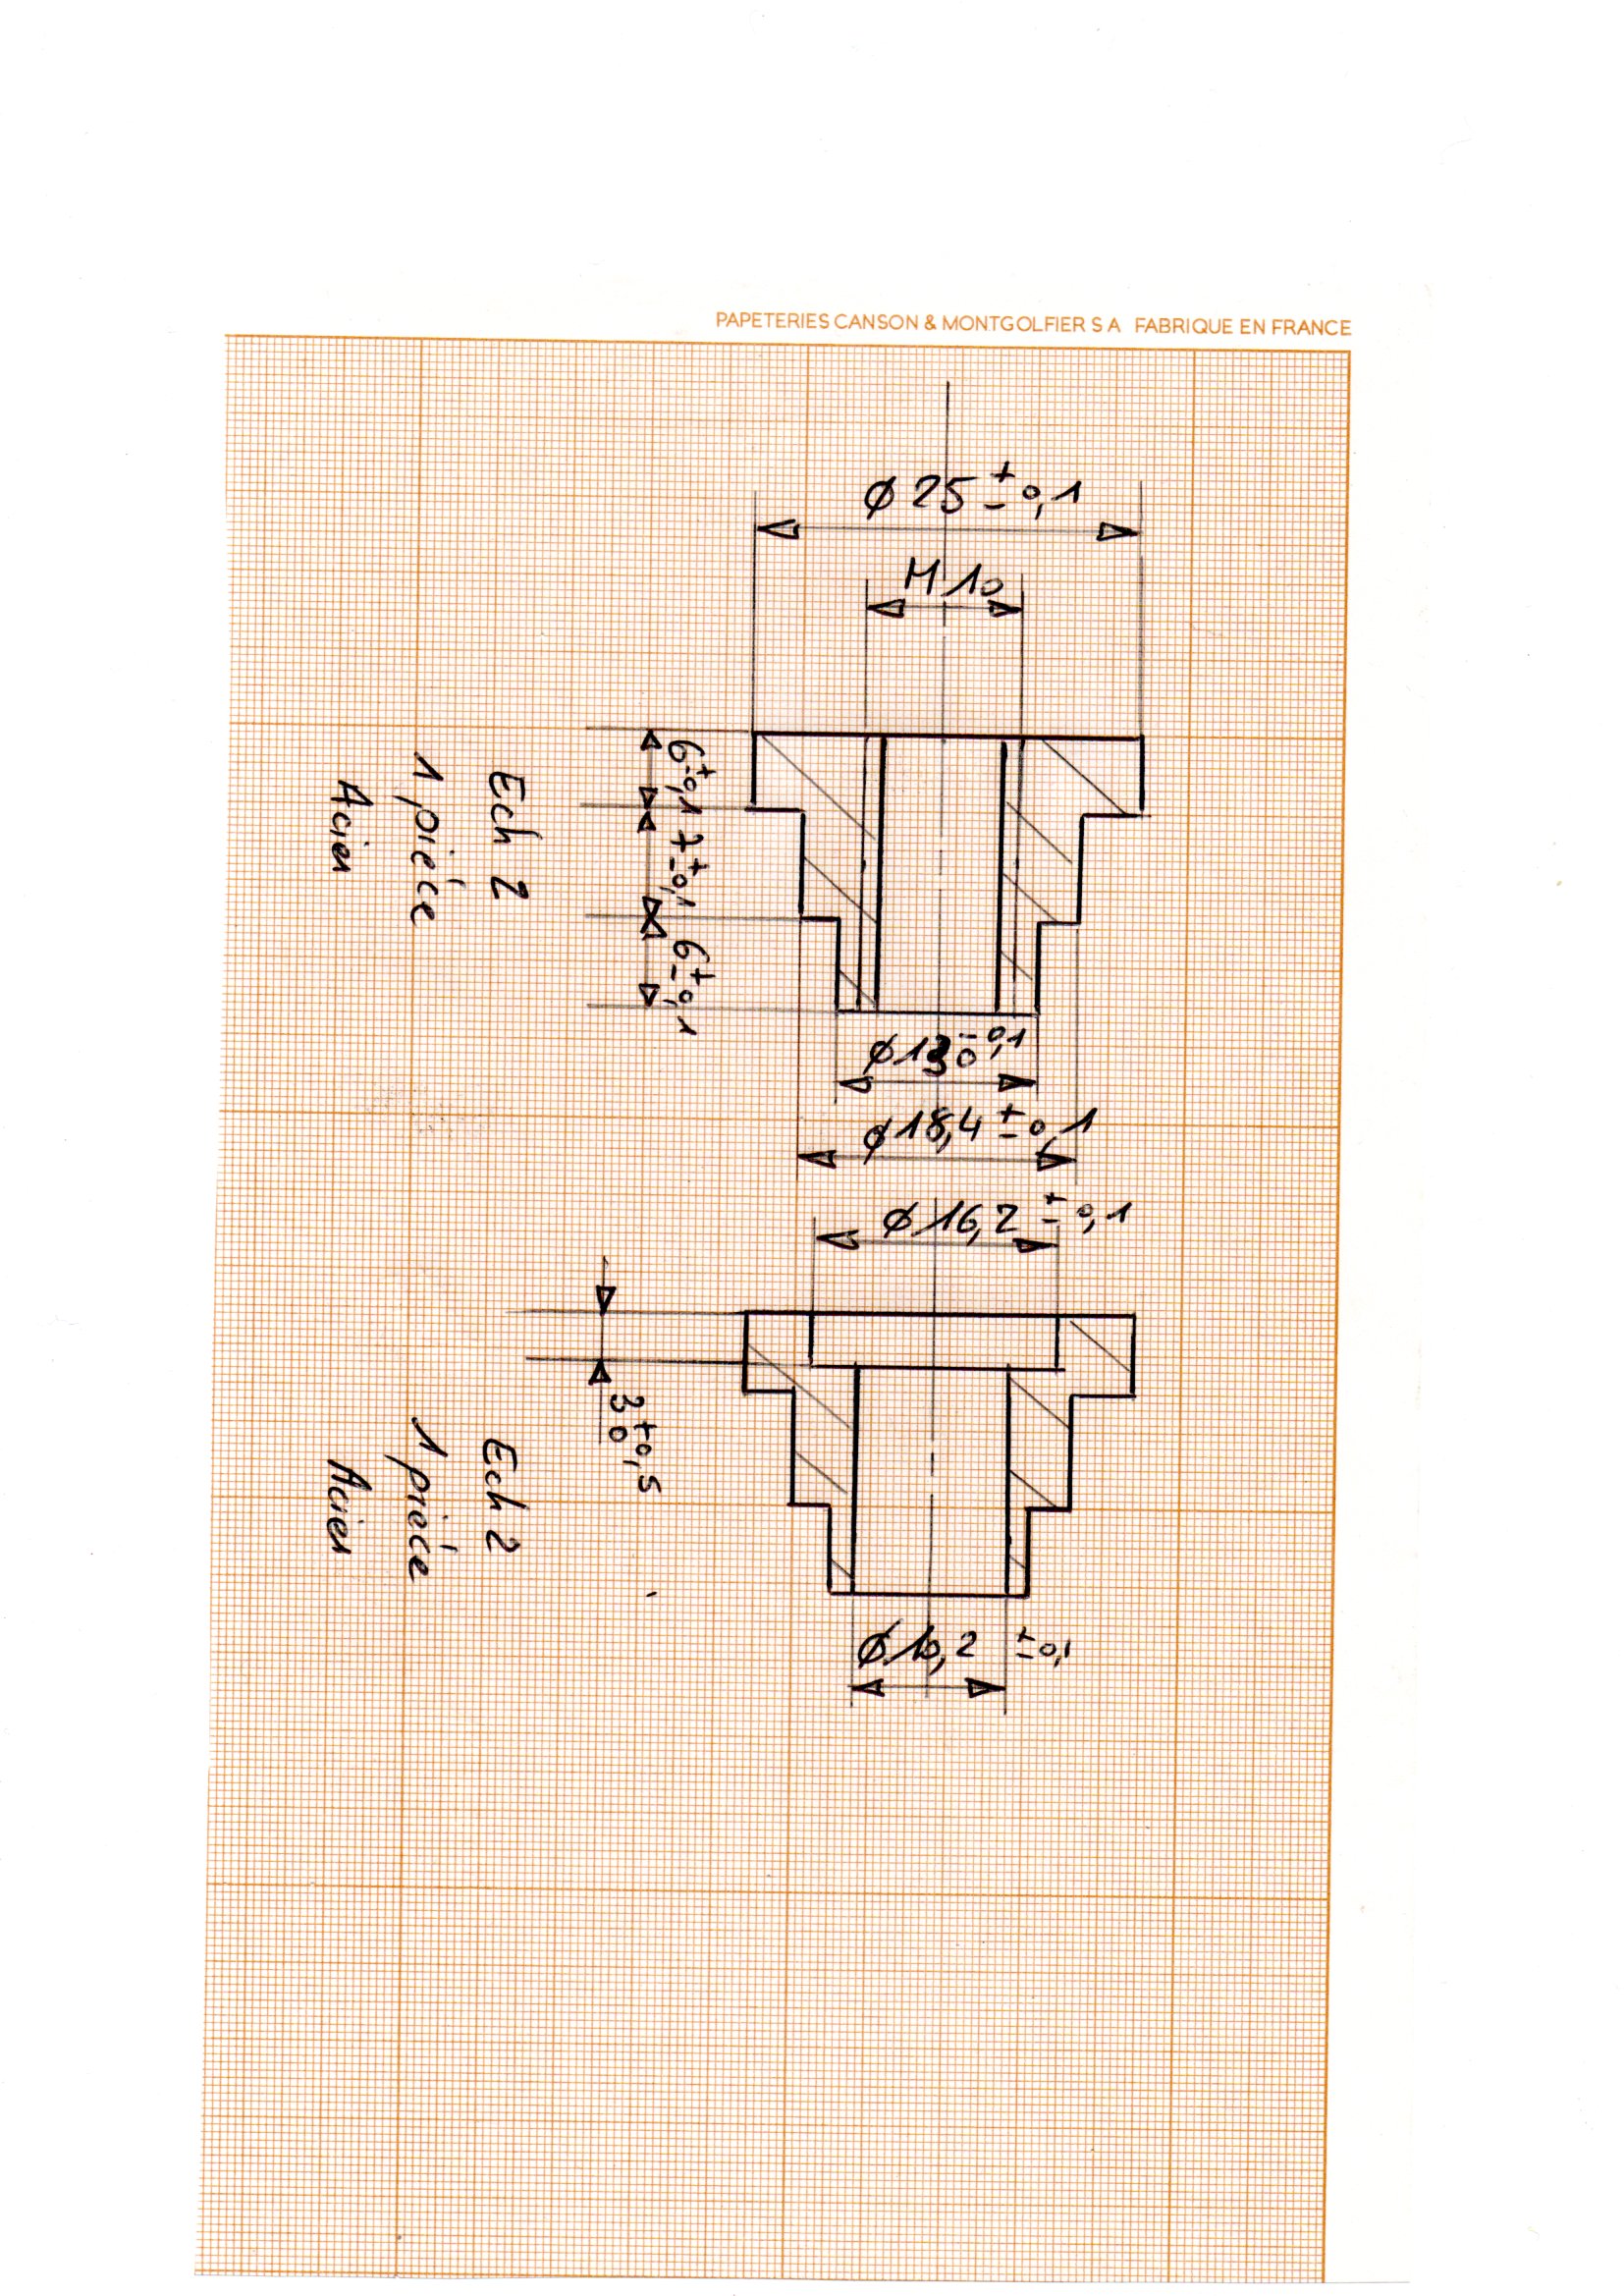 PAPETERIES CANSON & MONTGOLFIER S A FABRIQUE EN FRANCE
Ø 25 ± 0,1
M 10
6 ± 0,1
7 ± 0,1
6 ± 0,1
Ech 2
1 pièce
Acier
Ø 13 - 0,1 0
Ø 18,4 ± 0,1
Ø 16,2 ± 0,1
3 + 0,5 0
Ech 2
1 pièce
Acier
Ø 10,2 ± 0,1